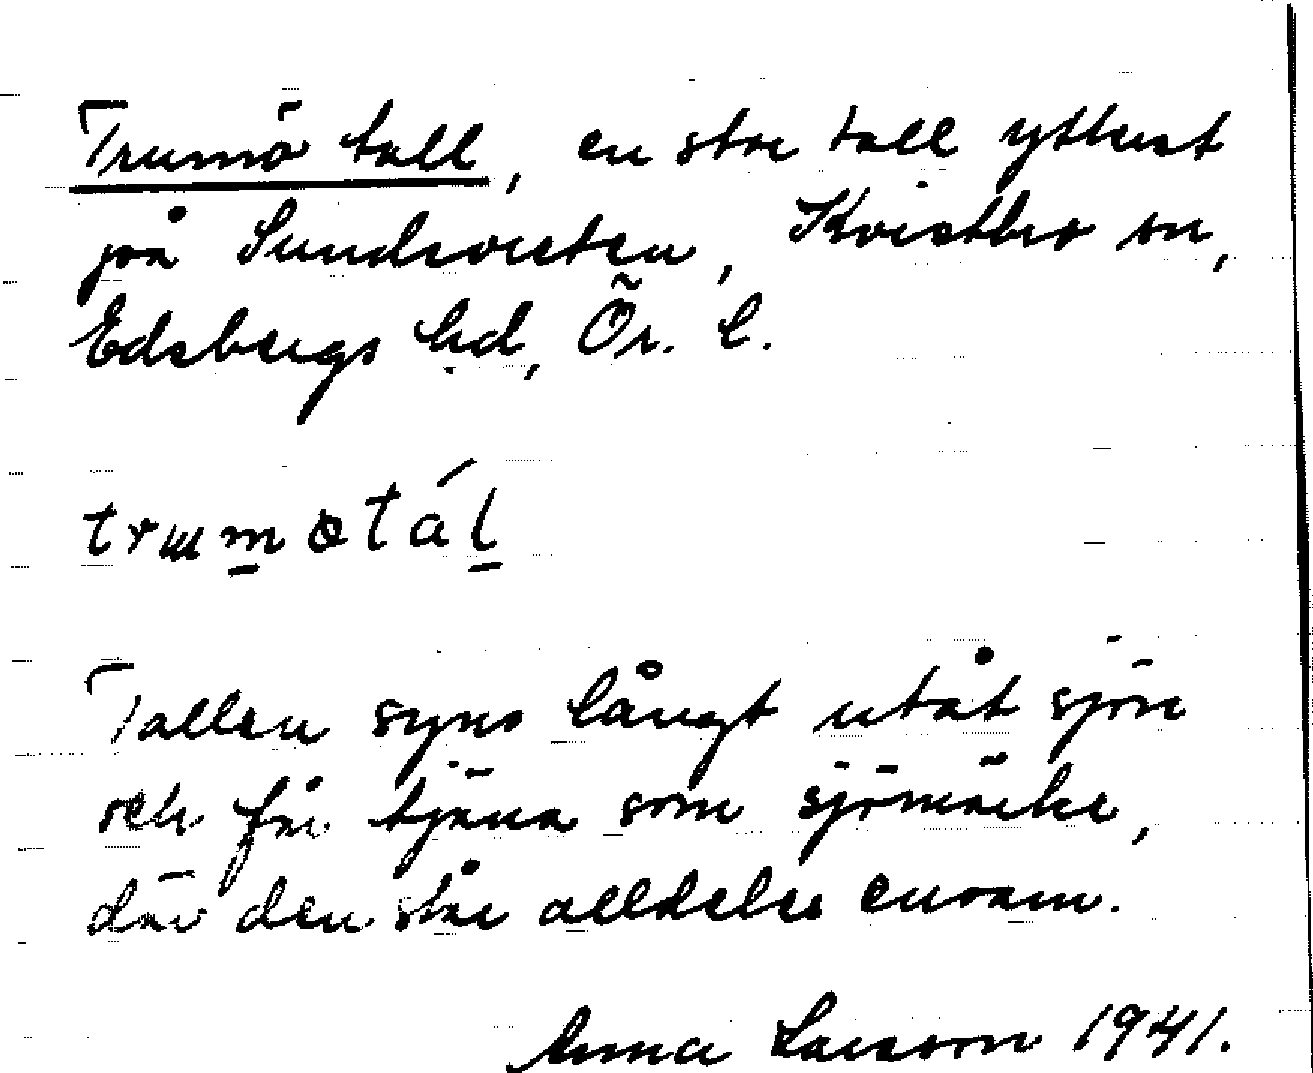 Trumö tall, en stor tall ytterst
på Sundsvreten, Kvistbro sn,
Edsbergs hd, Ör. l.
trumotál
Tallen syns långt utåt sjön
och får tjäna som sjömärke,
där den står alldeles ensam.
Anna Larsson 1941.